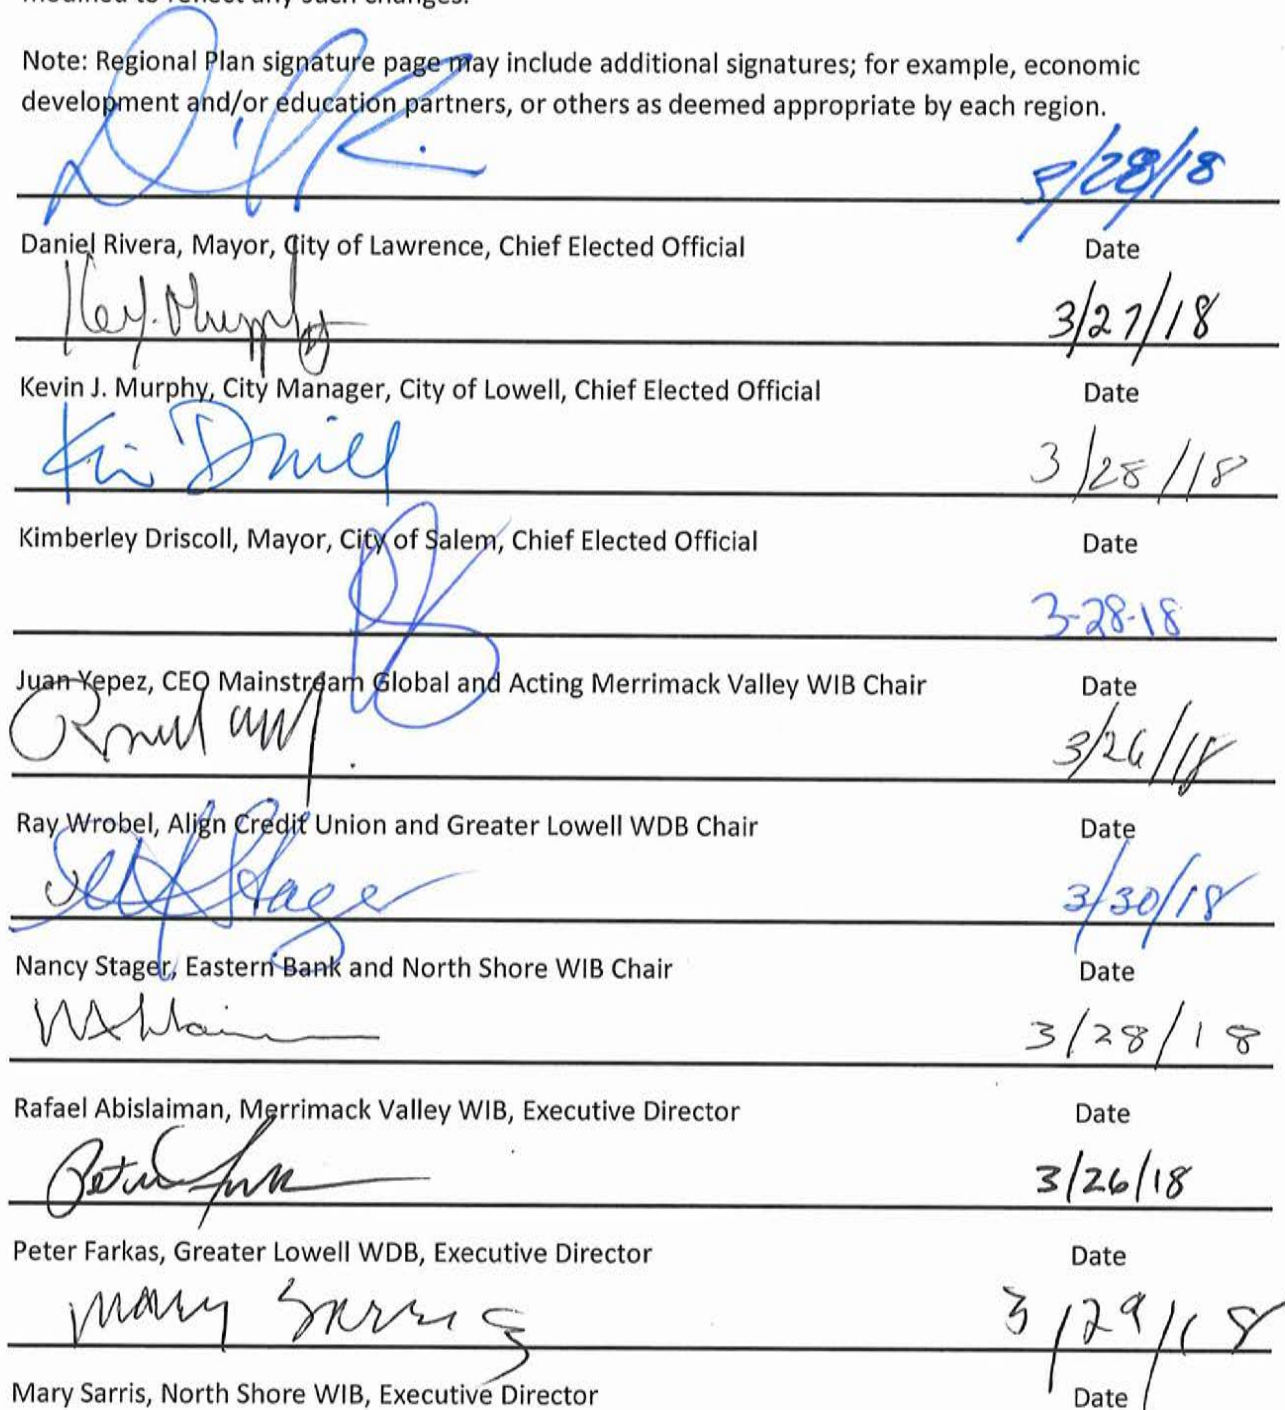 modified to reflect any such changes.
Note: Regional Plan signature page may include additional signatures; for example, economic
development and/or education partners, or others as deemed appropriate by each region.
3/28/18
Daniel Rivera, Mayor, City of Lawrence, Chief Elected Official Date
3/27/18
Kevin J. Murphy, City Manager, City of Lowell, Chief Elected Official Date
3/28/18
Kimberley Driscoll, Mayor, City of Salem, Chief Elected Official Date
3-28-18
Juan Yepez, CEO Mainstream Global and Acting Merrimack Valley WIB Chair Date
3/26/18
Ray Wrobel, Align Credit Union and Greater Lowell WDB Chair Date
Stager 3/30/18
Nancy Stager, Eastern Bank and North Shore WIB Chair Date
3/28/18
Rafael Abislaiman, Merrimack Valley WIB, Executive Director Date
3/26/18
Peter Farkas, Greater Lowell WDB, Executive Director Date
Mary Sarris 3/29/18
Mary Sarris, North Shore WIB, Executive Director Date